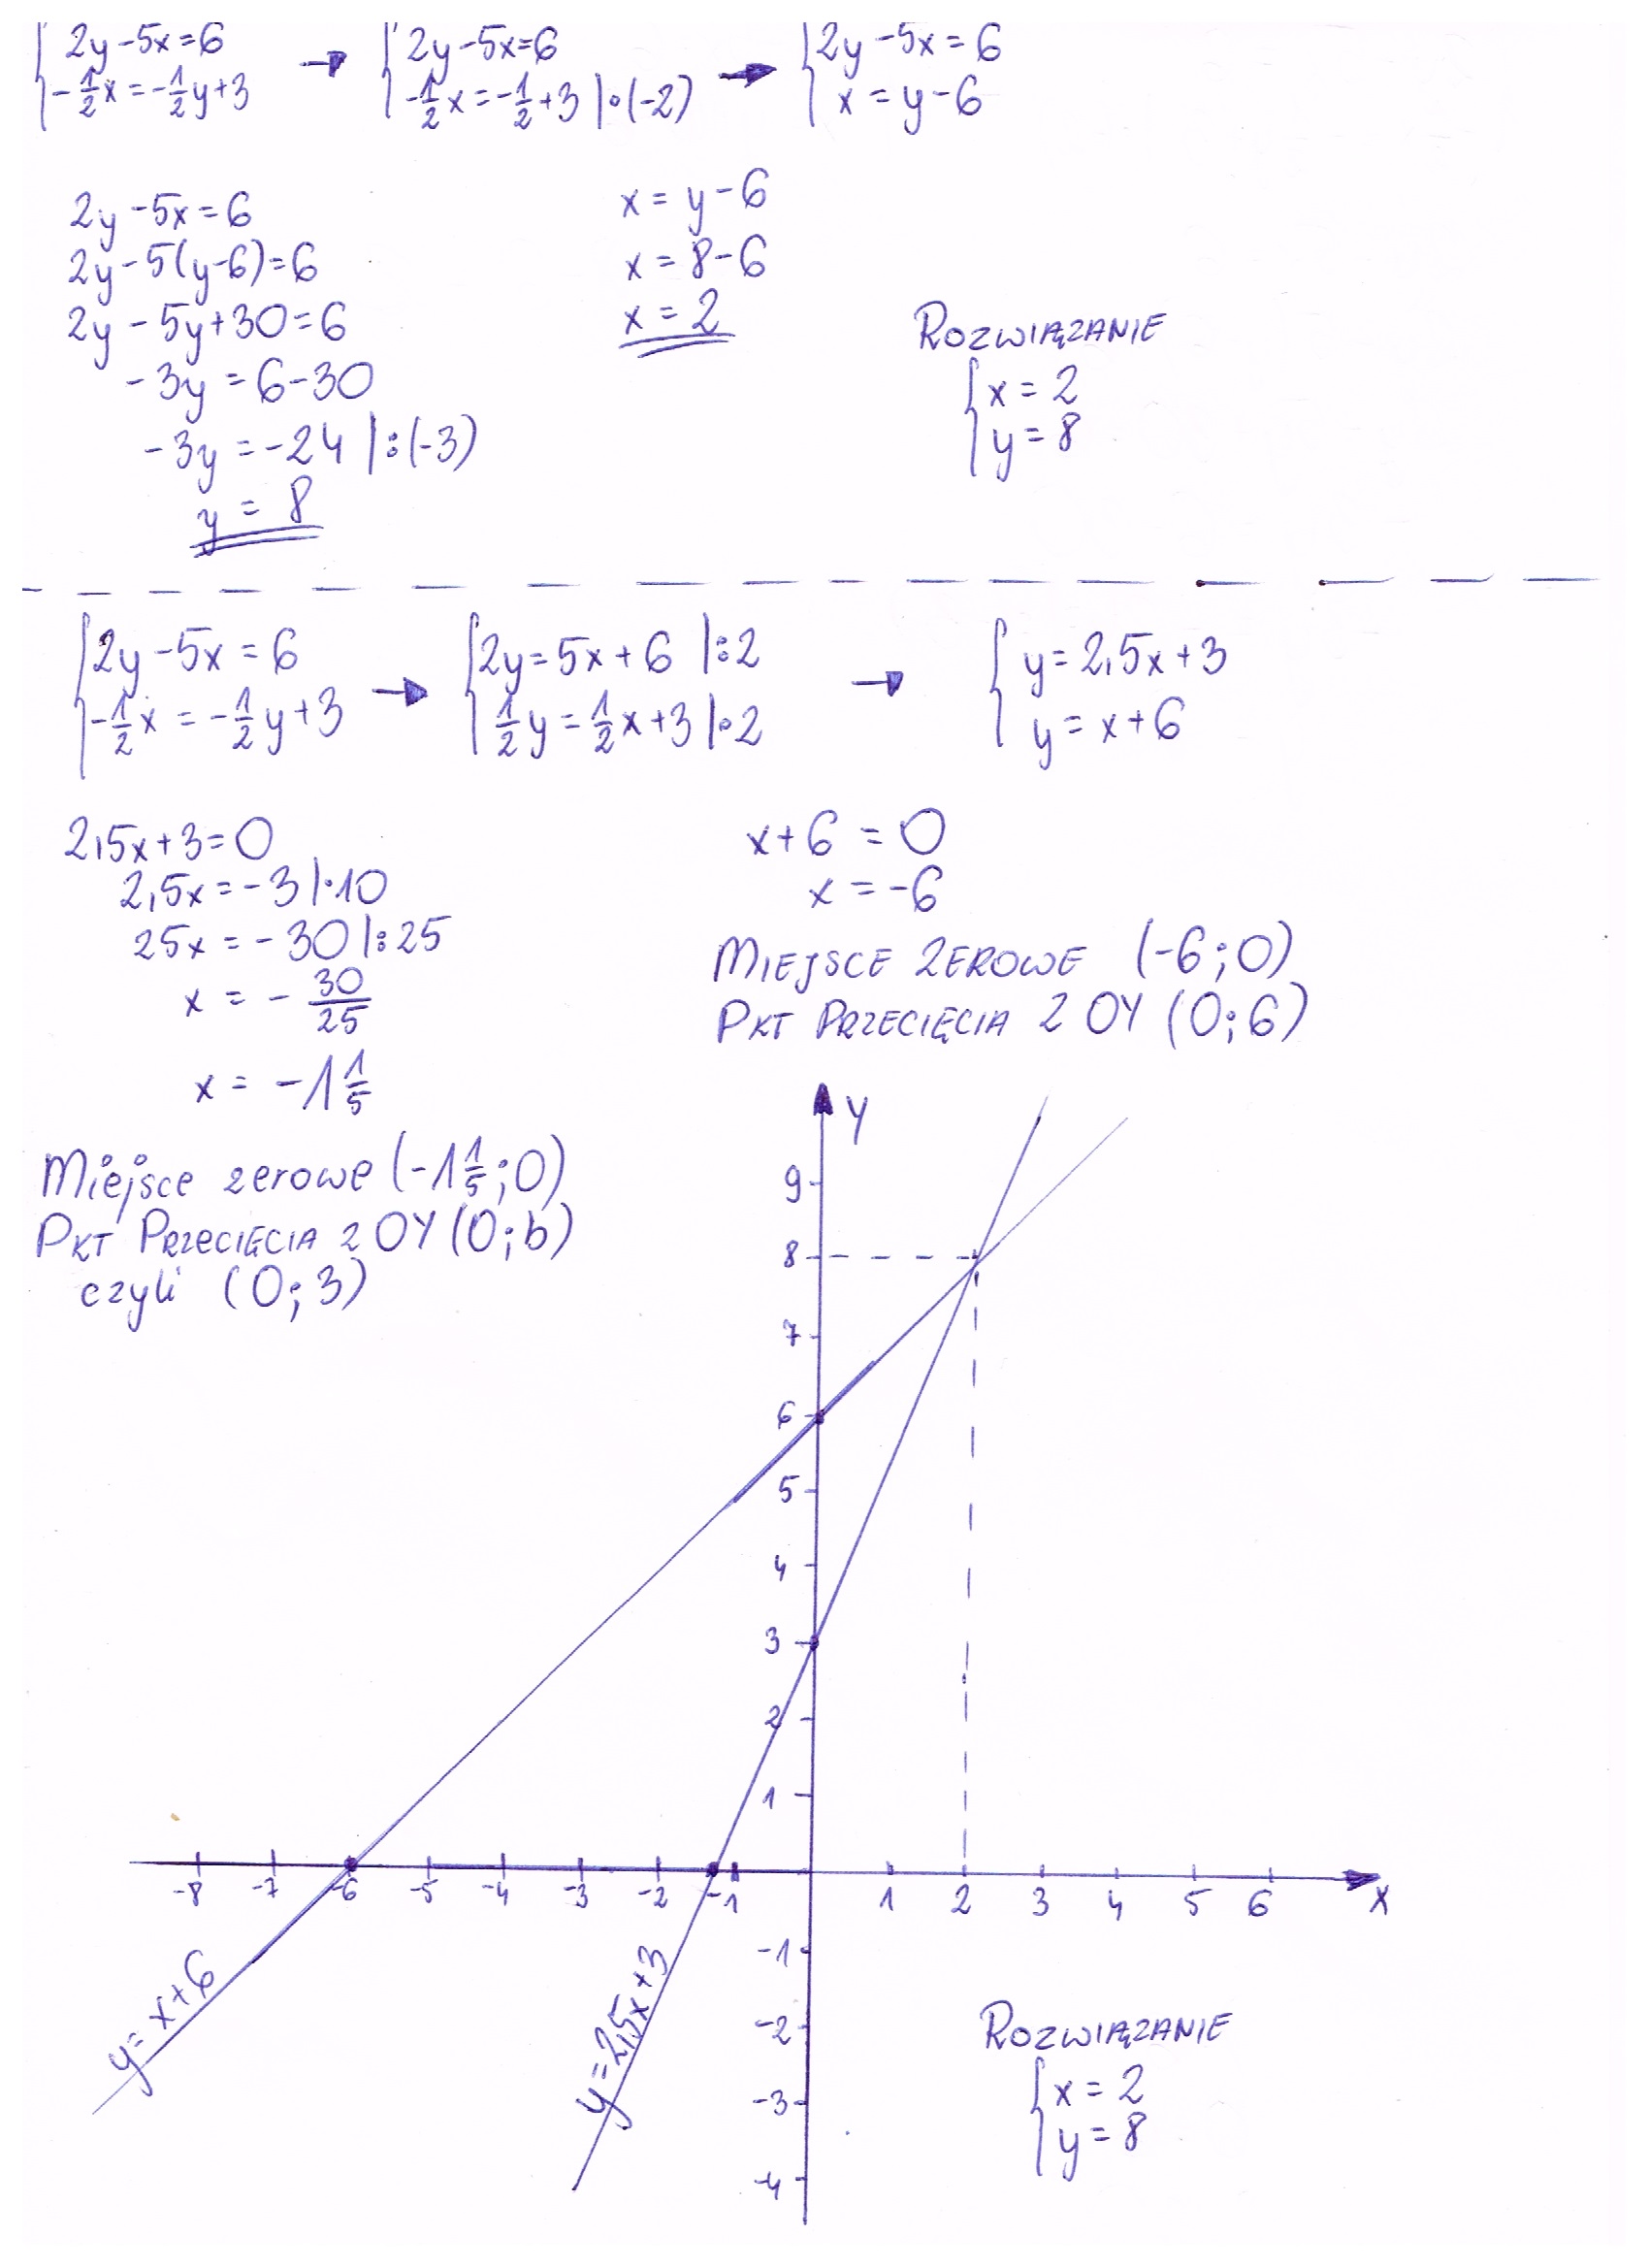 {2y-5x=6 → {2y-5x=6 → {2y-5x=6
-1/2x=-1/2y+3 -1/2x=-1/2+3|•(-2) x=y-6
2y-5x=6
2y-5(y-6)=6
2y-5y+30=6
-3y=6-30
-3y=-24|:(-3)
y=8
x=y-6
x=8-6
x=2
ROZWIĄZANIE
{x=2
y=8
{2y-5x=6 → {2y=5x+6|:2 → {y=2,5x+3
-1/2x=-1/2y+3 1/2y=1/2x+3|•2 y=x+6
2,5x+3=0
2,5x=-3|•10
25x=-30|:25
x=-30/25
x=-1 1/5
Miejsce zerowe (-1 1/5;0)
PKT PRZECIĘCIA z OY (0;b)
czyli (0;3)
x+6=0
x=-6
MIEJSCE ZEROWE (-6;0)
PKT PRZECIĘCIA Z OY (0;6)
Y
9
8
7
6
5
4
3
2
1
-8 -7 -6 -5 -4 -3 -2 -1 1 2 3 4 5 6 X
-1
-2
-3
-4
y=x+6
y=2,5x+3
ROZWIĄZANIE
{x=2
y=8